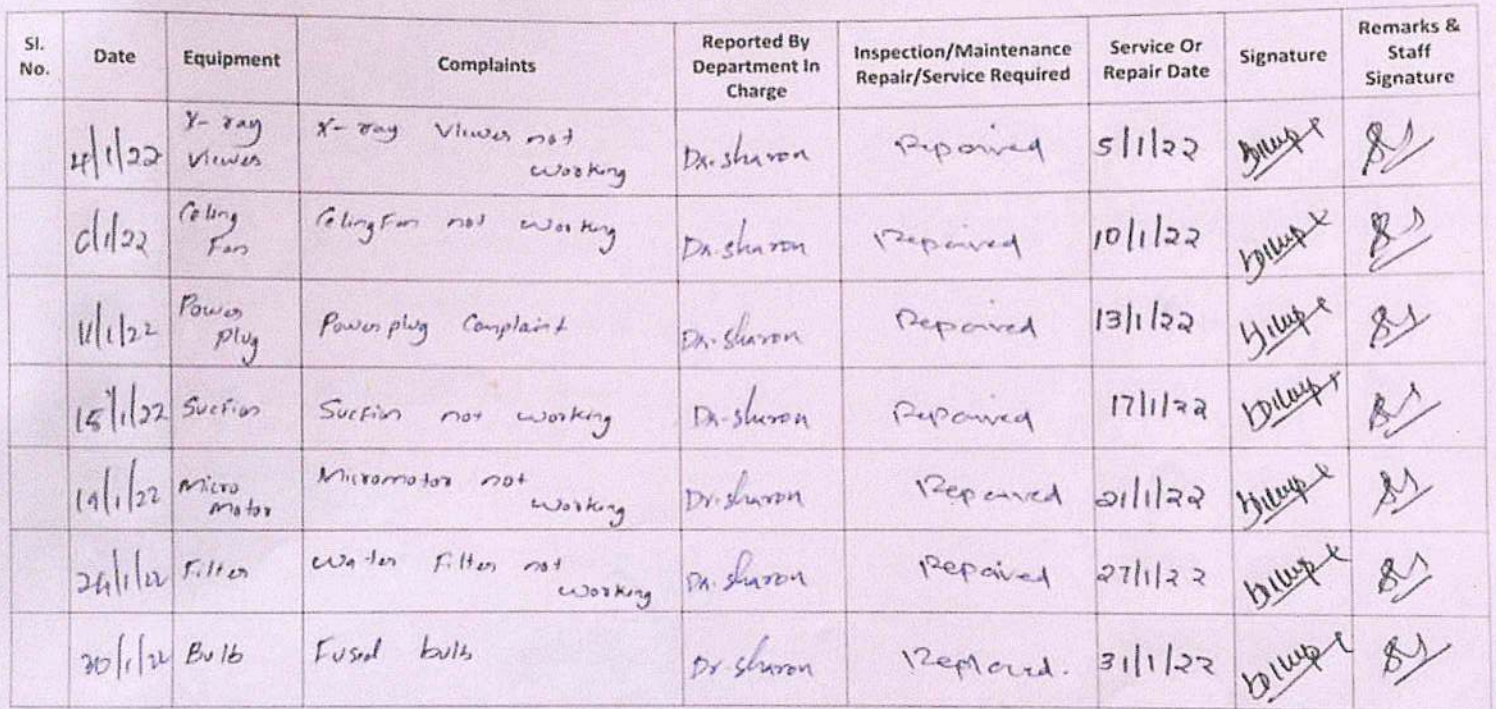 Sl. No. Date Equipment Complaints Reported By Department In Charge Inspection/Maintenance Repair/Service Required Service Or Repair Date Signature Remarks & Staff Signature
4/1/22 X-ray Viewer X-ray Viewer not working Dr. Sharon Repaired 5/1/22
/1/22 Celing Fan Celing Fan not working Dr. Sharon Repaired 10/1/22
11/1/22 Power Plug Power plug Complaint Dr. Sharon Repaired 13/1/22
15/1/22 Suction Suction not working Dr. Sharon Repaired 17/1/22
19/1/22 Micro motor Micromotor not working Dr. Sharon Repaired 21/1/22
24/1/22 Filter Water Filter not working Dr. Sharon Repaired 27/1/22
30/1/22 Bulb Fused bulb Dr Sharon Replaced. 31/1/22